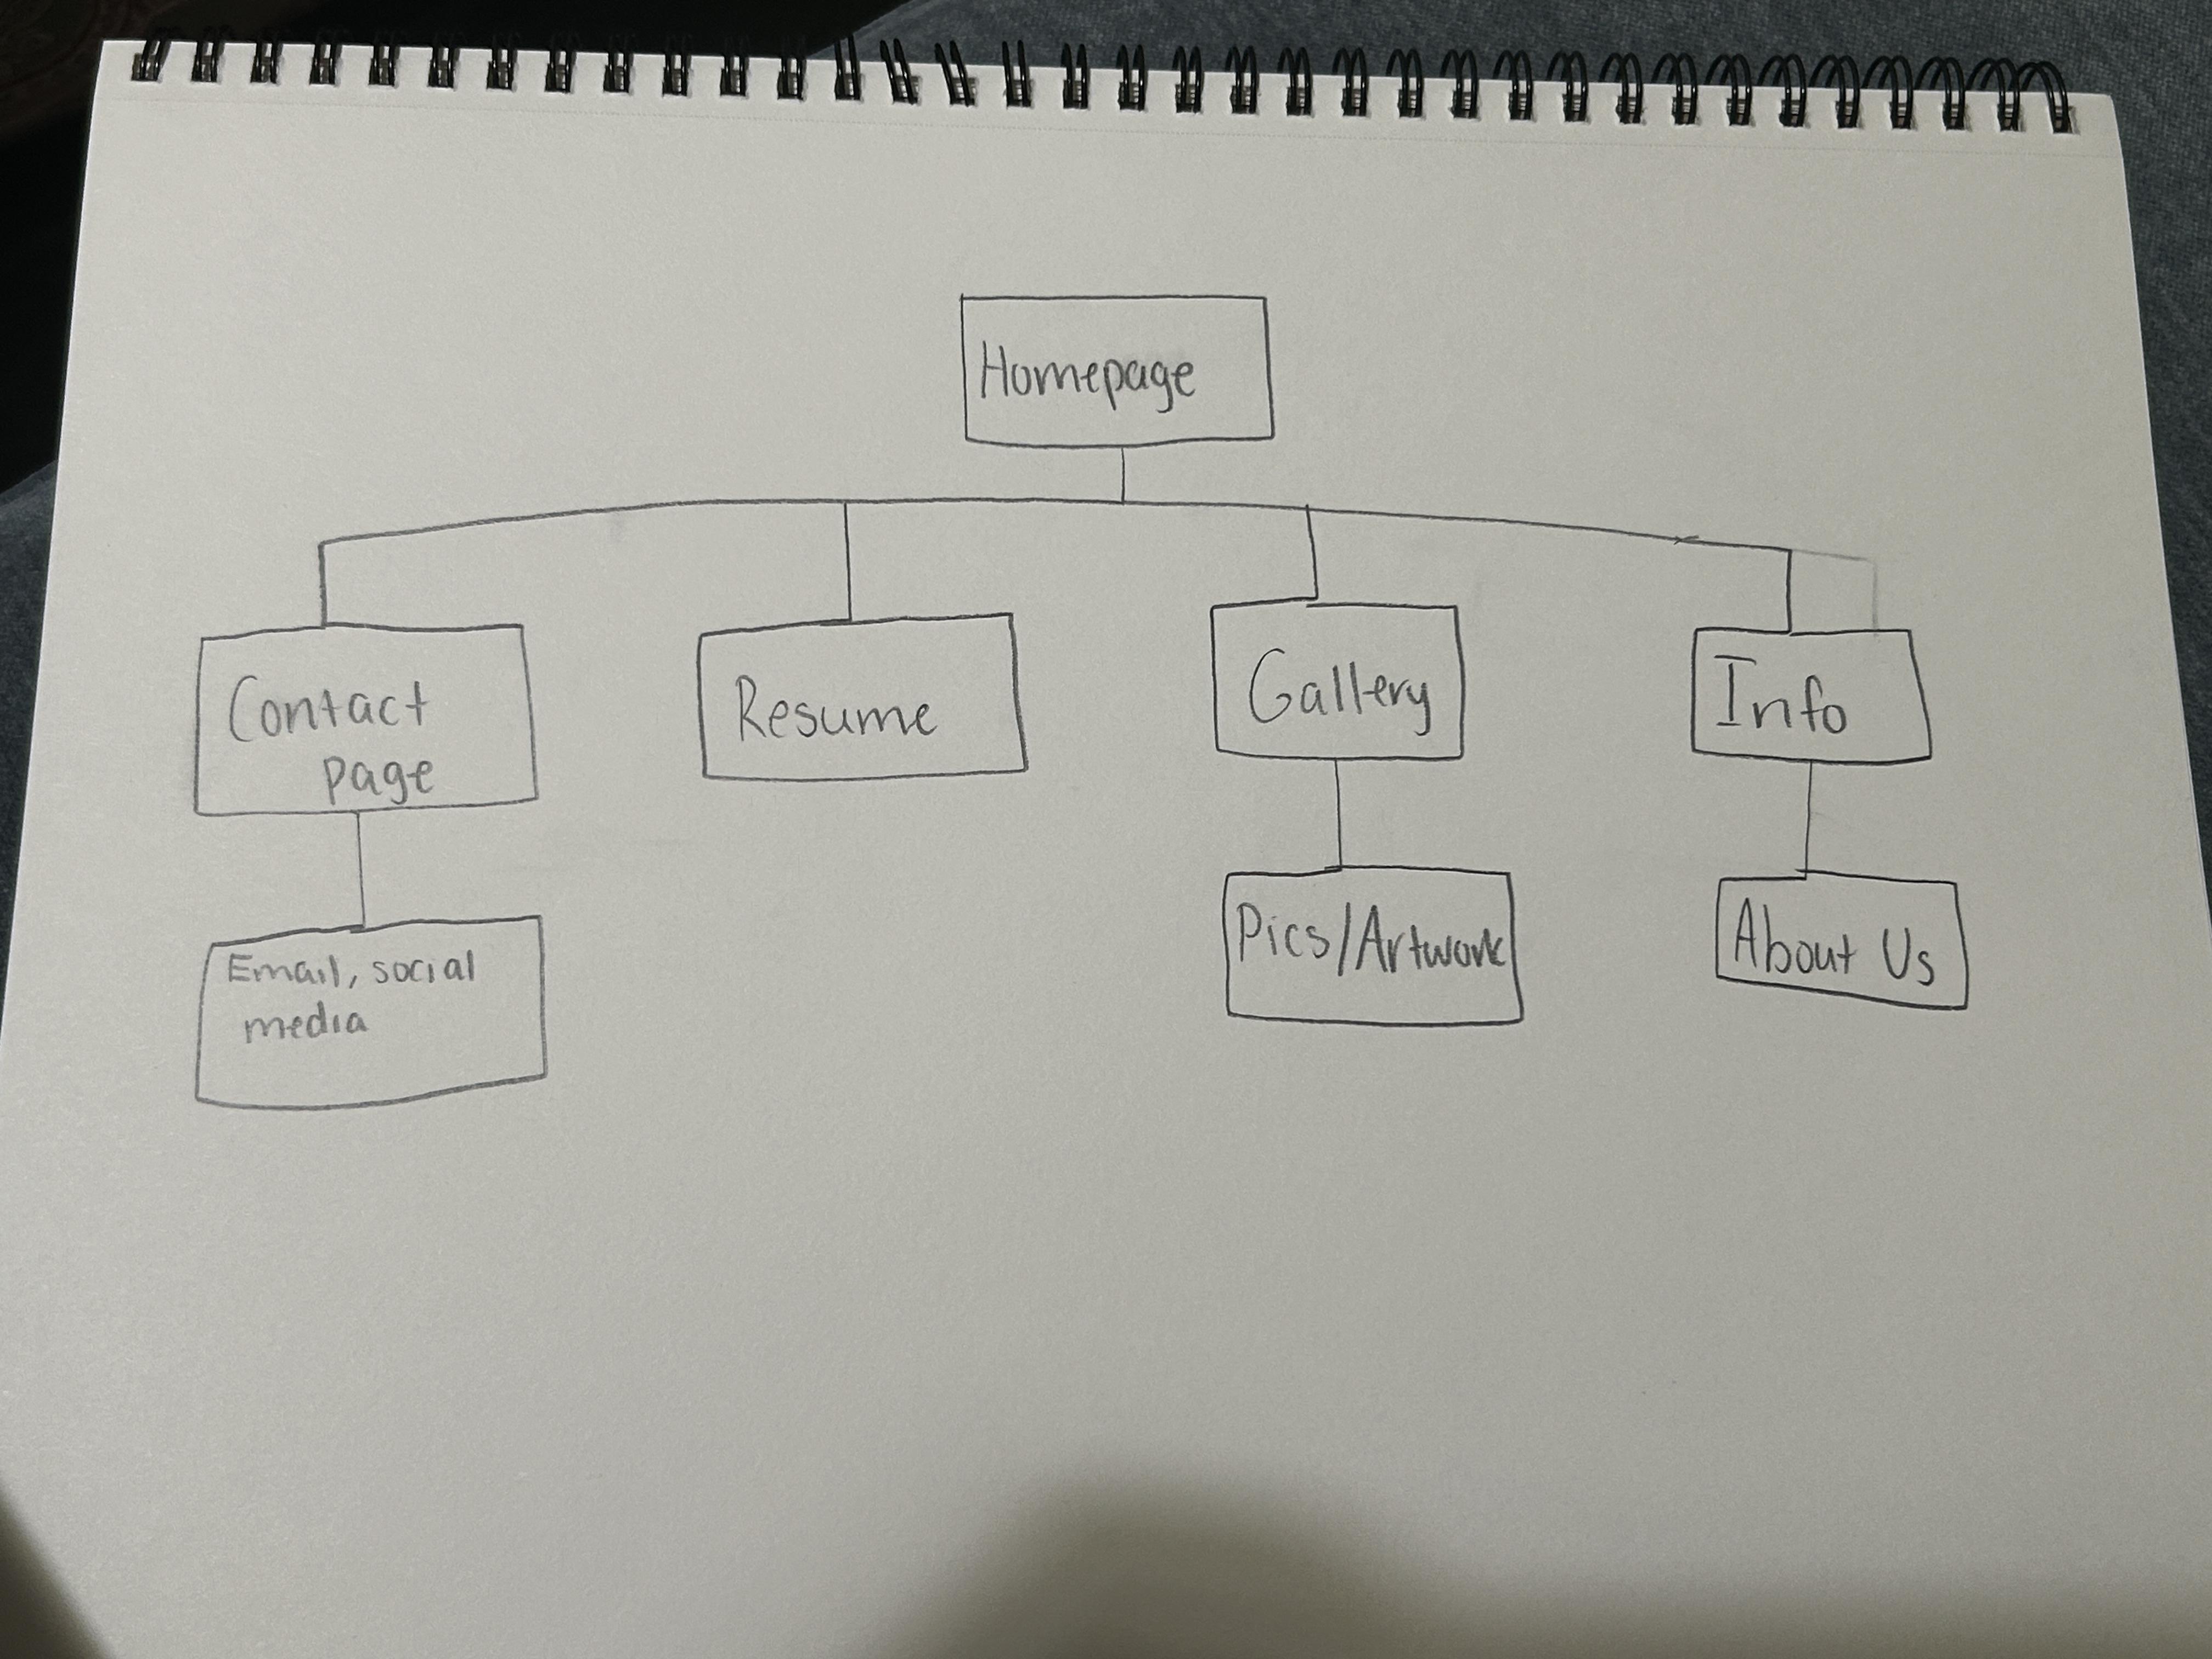 Homepage
Contact
page
Resume
Gallery
Info
Email, social
media
Pics/Artwork
About Us